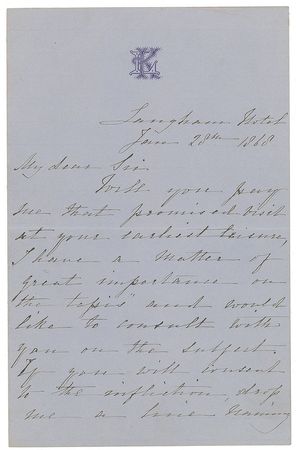 Langham Hotel
Jan 28th 1868
My dear Sir.
Will you pay
me that promised visit
at your earliest leisure,
I have a matter of
great importance on
the "tapis" and would
like to consult with
you on the subject.
If you will consent
to the infliction, drop
me a line naming